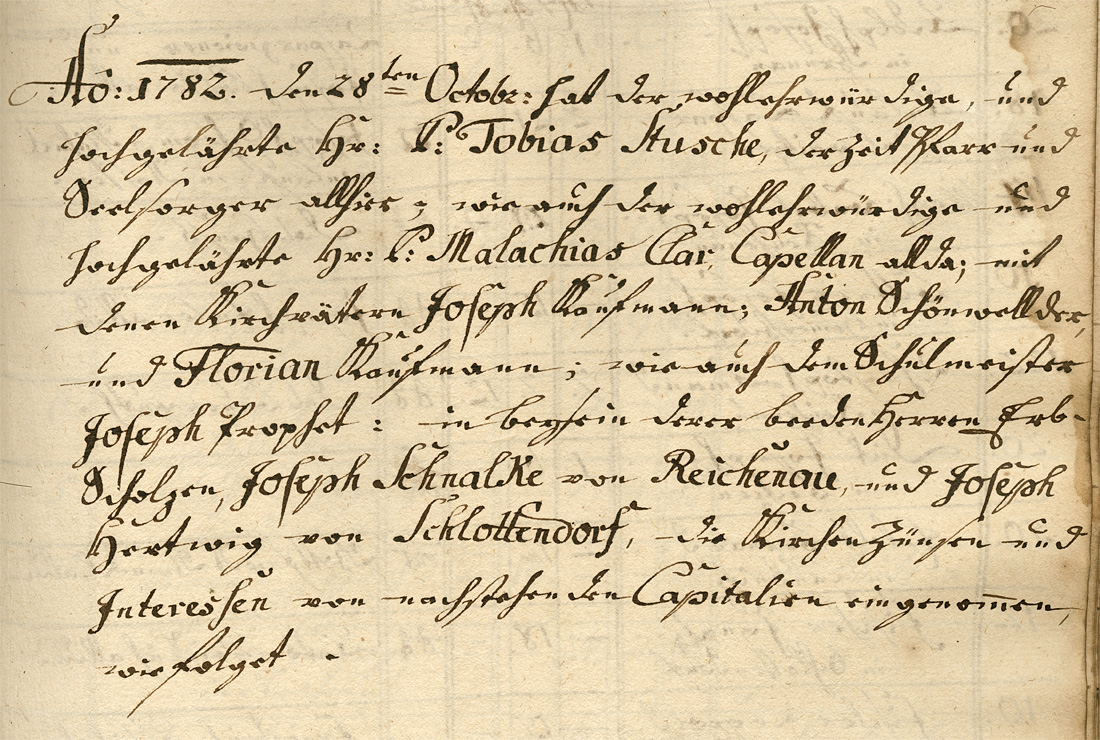 Aõ: 1782. den 28ten Octobr: hat der wohlehrwürdige, und
hochgelährte Hr: P: Tobias Stusche, derzeit Pfarr und
Seelsorger allhier; wie auch der wohlehrwürdige und
hochgelährte Hr: P: Malachias Clar, Capellan allda; mit
denen Kirchvätern Joseph Kaufmann; Anton Schönwellder,
und Florian Kaufmann; wie auch dem Schulmeister
Joseph Prophet: in beysein derer beeden Herren Erb-
Scholzen, Joseph Schnalke von Reichenau, und Joseph
Hertwig von Schlottendorf, die Kirchen Zünsen und
Interessen von nachstehenden Capitalien eingenom̅en,
wie folget